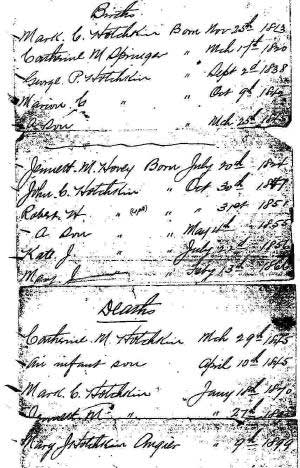 Births
Mark C. Hotchkin Born Nov 25th 1813
Catherine M Springer " Mch 17th 1820
George P. Hotchkin " Sept 2d 1838
Marion C " " Oct 9th
A Son " Mch 25th
Jennett M. Hovey Born July 20th
John C. Hotchkin " Oct. 30th 1847
Robert H. " " " 31st 1851
- A son " May 4th
Kate J. " July
Mary J " Feby 13th
Deaths
Catherine M. Hotchkin Mch 29th 1845
An infant son April 10th 1845
Mark C. Hotchkin Jany 18th 1890
Jennett M - " " 27th
Mary J Hotchkin Angier " 9th 1899